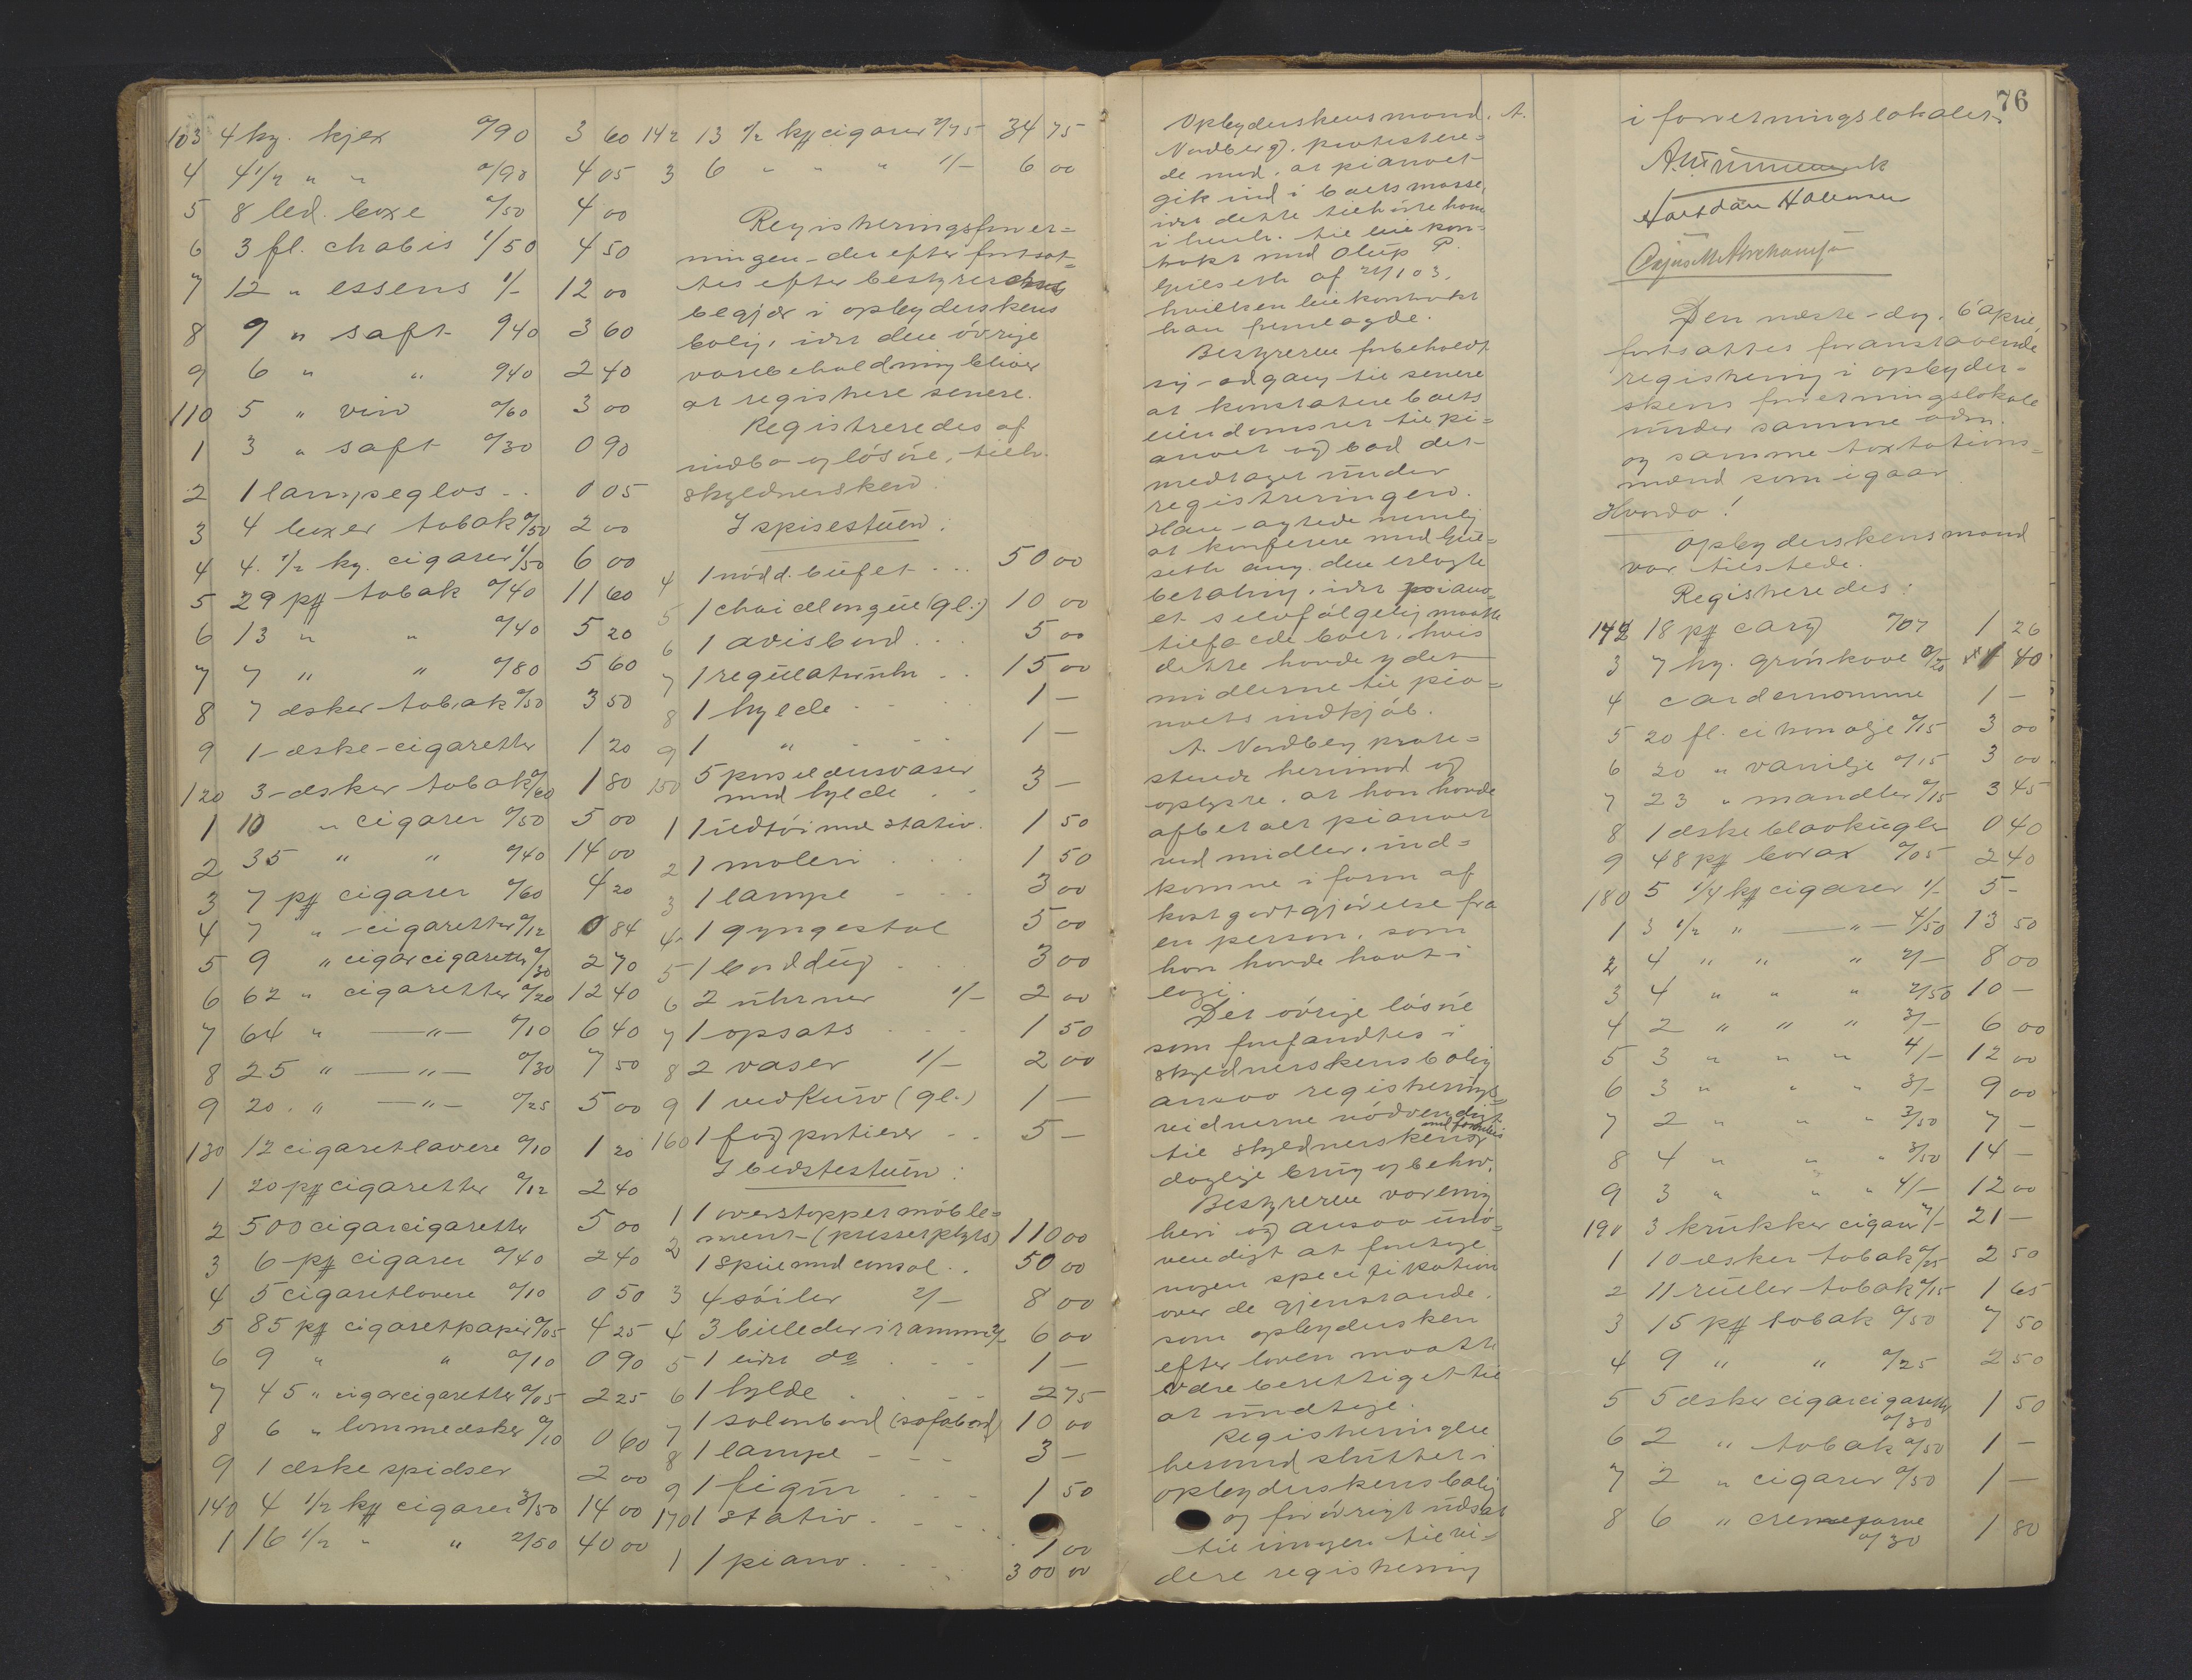 103 4 kg. kjex a/90 3 60
4 4 1/2 " " a/90 4 05
5 8 led. boxe a/50 4 00
6 3 fl. chabis 1/50 4 50
7 12 " essens 1/- 12 00
8 9 " saft a/40 3 60
9 6 " " a/40 2 40
110 5 " vin a/60 3 00
1 3 " saft a/30 0 90
2 1 lampeglas - . 0 05
3 4 boxer tobak a/50 2 00
4 4. 1/2 kg. cigarer 1/50 6 00
5 29 pk tobak a/40 11 60
6 13 " " a/40 5 20
7 7 " " a/80 5 60
8 7 æsker tobak a/50 3 50
9 1 æske cigaretter 1 20
120 3 æsker tobak a/60 1 80
1 10 " cigarer a/50 5 00
2 35 " " a/40 14 00
3 7 pk cigarer a/60 4 20
4 7 " cigaretter a/12 0 84
5 9 " cigarcigaretter a/30 2 70
6 62 " cigaretter a/20 12 40
7 64 " —"— a/10 6 40
8 25 " —"— a/30 7 50
9 20 . " —"— a/25 5 00
130 12 cigaretlavere a/10 1 20
1 20 pk cigaretter a/12 2 40
2 500 cigarcigaretter 5 00
3 6 pk cigarer a/40 2 40
4 5 cigaretlavere a/10 0 50
5 85 pk cigaretpapir a/05 4 25
6 9 " " a/10 0 90
7 45 " cigarcigaretter a/05 2 25
8 6 " lommeæsker a/10 0 60
9 1 æske spidser 2 00
140 4 1/2 kk cigarer 3/50 14 00
1 16 1/2 " " 2/50 40 00
142 13 1/2 kk cigarer 2/75 34 75
3 6 " " " 1/- 6 00
Registreringsforret=
ningen - derefter fortsat=
tes efter bestyrerens
begjær i opbyderskens
bolig, idet den övrige
varebeholdning bliver
at registrere senere.
Registreredes af
indbo og lösöre, tilh.
skyldnersken:
I spisestuen:
4 1 nödd. büfet - . . 50 00
5 1 chaiselongue (gl.) 10 00
6 1 avisbord . . 5 00
7 1 regulatoruhr . . 15 00
8 1 hylde - - - 1 -
9 1 " - - - 1 -
150 5 porselænsvaser
med hylde . . 3 -
1 1 ildtöi med stativ. 1 50
2 1 maleri . . . 1 50
3 1 lampe - - - 3 00
4 1 gyngestol 5 00
5 1 borddug . . 3 00
6 2 uhrner 1/- 2 00
7 1 opsats . . . 1 50
8 2 vaser 1/- 2 00
9 1 vedkurv (gl.) 1 -
160 1 fag portierer - - 5 -
I bedstestuen:
1 1 overstoppet möble=
ment - (presset plyds) 110 00
2 1 speil med consol . . 50 00
3 4 söiler 2/- 8 00
4 3 billeder i ramme 2/- 6 00
5 1 lidet do . . - 1 -
6 1 hylde . . - - 2 75
7 1 salonbord (sofabord) 10 00
8 1 lampe - - - 3 -
9 1 figur . . . 1 50
170 1 stativ . . - . . 1 00
1 1 piano . . . 300 00
Opbyderskens mand, A.
Nordberg, protestere=
de mod, at pianoet
gik ind i boets masse,
idet dette tilhörte ham
i henh. til leiekon=
trakt med Oluf P.
Guilseth af 24/1 03,
hvilken leiekontrakt
han fremlagde.
Bestyreren forbeholdt
sig adgang til senere
at konstatere boets
eiendomsret til pi=
anoet og bad det
medtaget under
registreringen.
Han agtede nemlig
at konferere med Guil=
seth ang. den erlagte
betaling, idet piano=
et selvfölgelig maatte
tilfalde boet, hvis
dette havde ydet
midlerne til pia=
noets indkjöb.
A. Nordberg prote=
sterede herimod og
oplyste, at han havde
afbetalt pianoet
med midler, ind=
komne i form af
kostgodtgjörelse fra
en person, som
han havde havt i
logi.
Det övrige lösöre
som forefandtes i
skyldnerskens bolig
ansaa registrerings=
vidnerne nödvendigt
til skyldnerskens med families
daglige brug og behov.
Bestyreren var enig
heri og ansaa unö=
vendigt at foretage
nogen specifikation
over de gjenstande,
som opbydersken
efter loven maatte
være berettiget til
at undtage.
Registreringen
hermed sluttet i
opbyderskens bolig
og forövrigt udsat
til imorgen til vi=
dere registrering
76
i forretningslokalet.
Den næste dag, 6 april,
fortsattes foranstaaende
registrering i opbyder=
skens forretningslokale
under samme adm.
og samme taxtations=
mænd som igaar.
Hvorda!
Opbyderskens mand
var tilstede.
Registreredes:
142 18 pk cary a/07 1 26
3 7 kg. grönkave a/20 1 40
4 cardemomme 1 -
5 20 fl. citronolje a/15 3 00
6 20 " vanilje a/15 3 00
7 23 " mandler a/15 3 45
8 1 æske blaakugler 0 40
9 48 pk borax a/05 2 40
180 5 1/4 kk cigarer 1/- 5 -
1 3 1/2 " —"— 4/50 13 50
2 4 " " " 2/- 8 00
3 4 " " " 2/50 10 -
4 2 " " " 3/- 6 00
5 3 " " " 4/- 12 00
6 3 " " " 3/- 9 00
7 2 " " " 3/50 7 -
8 4 " " " 3/50 14 -
9 3 " " " 4/- 12 00
190 3 krukker cigarer 7/- 21 -
1 10 æsker tobak a/25 2 50
2 11 ruller tobak a/15 1 65
3 15 pk tobak a/50 7 50
4 9 " " a/25 2 50
5 5 æsker cigarcigaretter
a/30 1 50
6 2 " tobak a/50 1 -
7 2 " cigarer a/50 1 -
8 6 " cremefarve
a/30 1 80